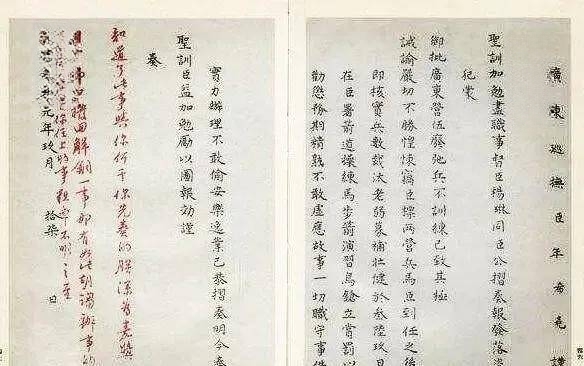 廣東巡撫臣年希堯謹
聖訓加勉盡職事督臣楊琳同臣公摺奏報發落
犯蒙
御批廣東營伍廢弛兵不訓練已致其極
誡諭嚴切不勝惶悚竊臣標兩營兵馬臣到任之後
即核實兵數裁汰老弱募補壯健於叁陸玖日
在臣署前道操練馬步箭演習鳥鎗立賞罰以
勸懲務期精熟不敢虛應故事一切職守事件
實力辦理不敢偷安樂逸業已恭摺奏明今奉
聖訓臣益加勉勵以圖報効謹
奏
知道了此事與你何干你先奏的朕深為嘉奬
解銅一事都有如此辦事的
你任上的事
元年玖月拾柒日